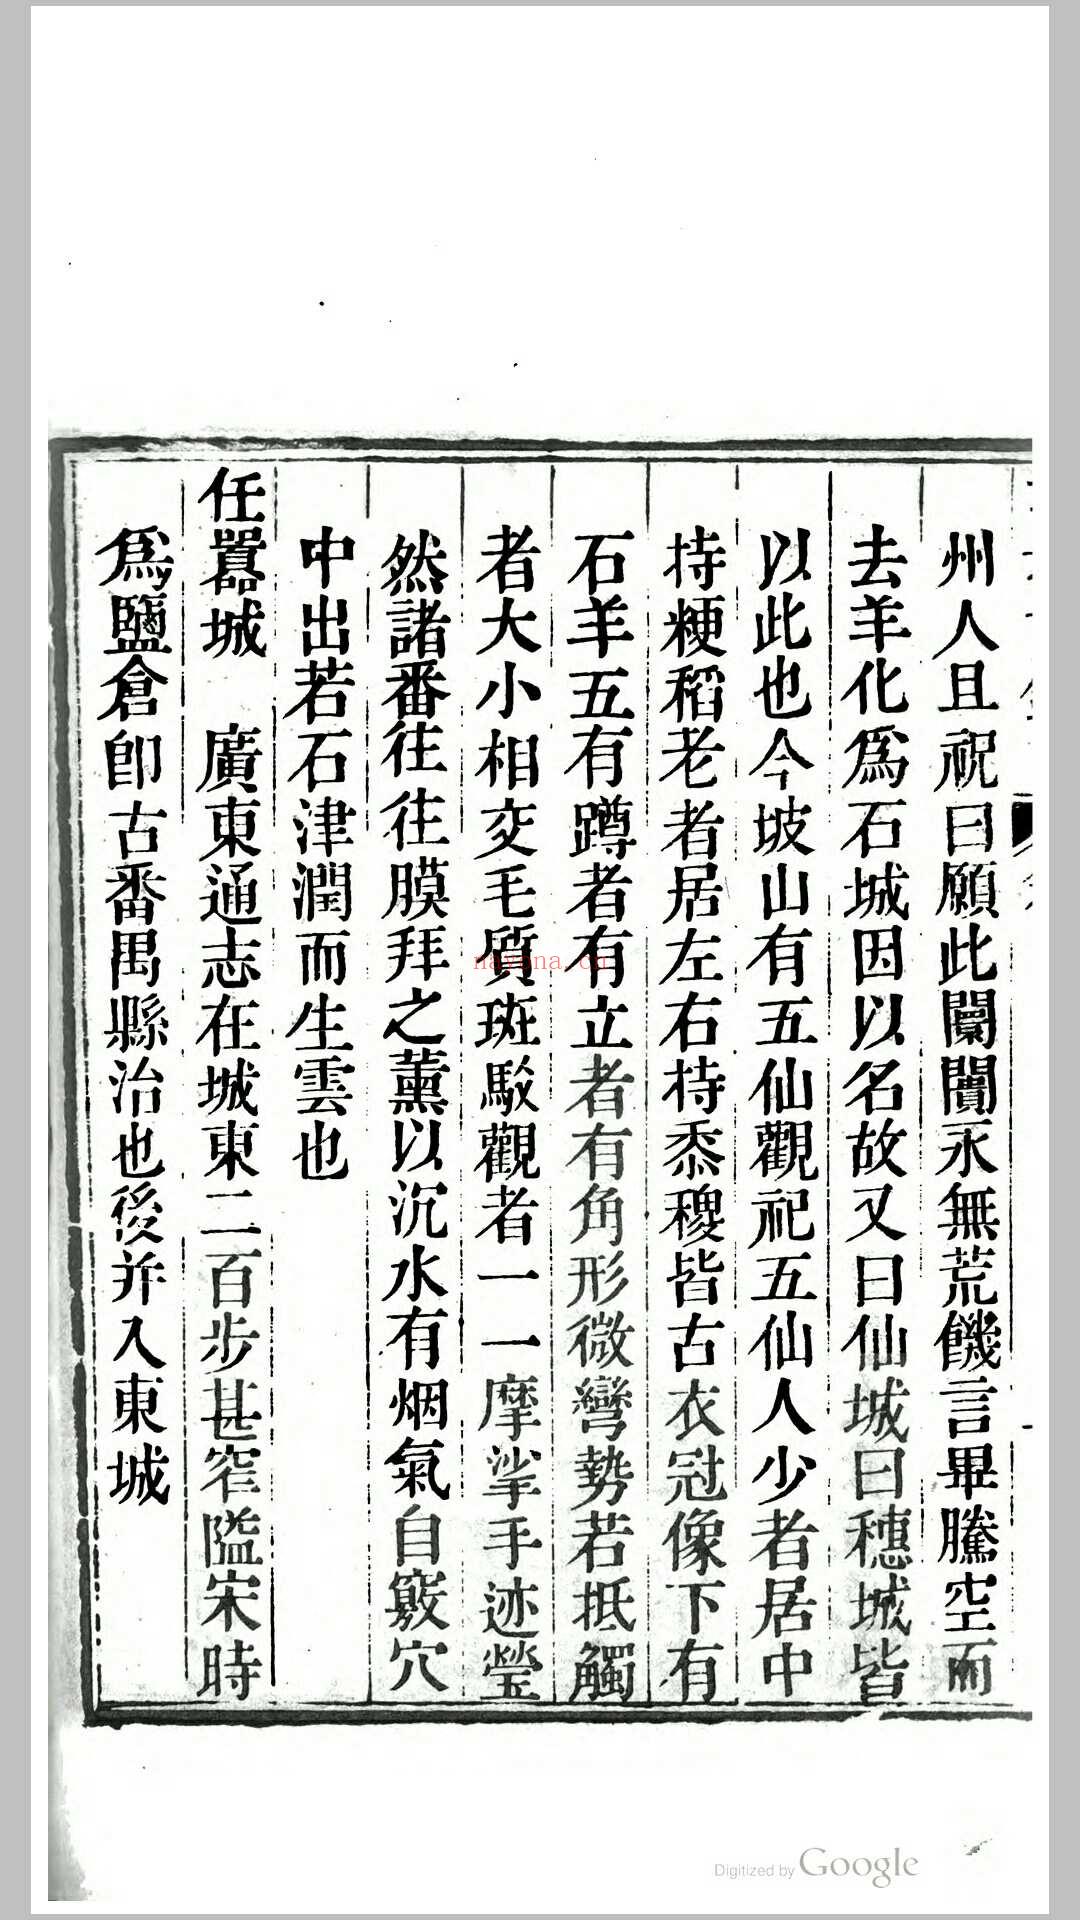 州人且祝曰願此闤闠永無荒饑言畢騰空而
去羊化爲石城因以名故又曰仙城曰穗城皆
以此也今坡山有五仙觀祀五仙人少者居中
持粳稻老者居左右持黍稷皆古衣冠像下有
石羊五有蹲者有立者有角形微彎勢若抵觸
者大小相交毛質斑駁觀者一一摩挲手迹瑩
然諸番往往膜拜之薰以沉水有烟氣自竅穴
中出若石津潤而生雲也
任囂城 廣東通志在城東二百步甚窄隘宋時
爲鹽倉卽古番禺縣治也後并入東城
nayona.cn
Digitized by Google